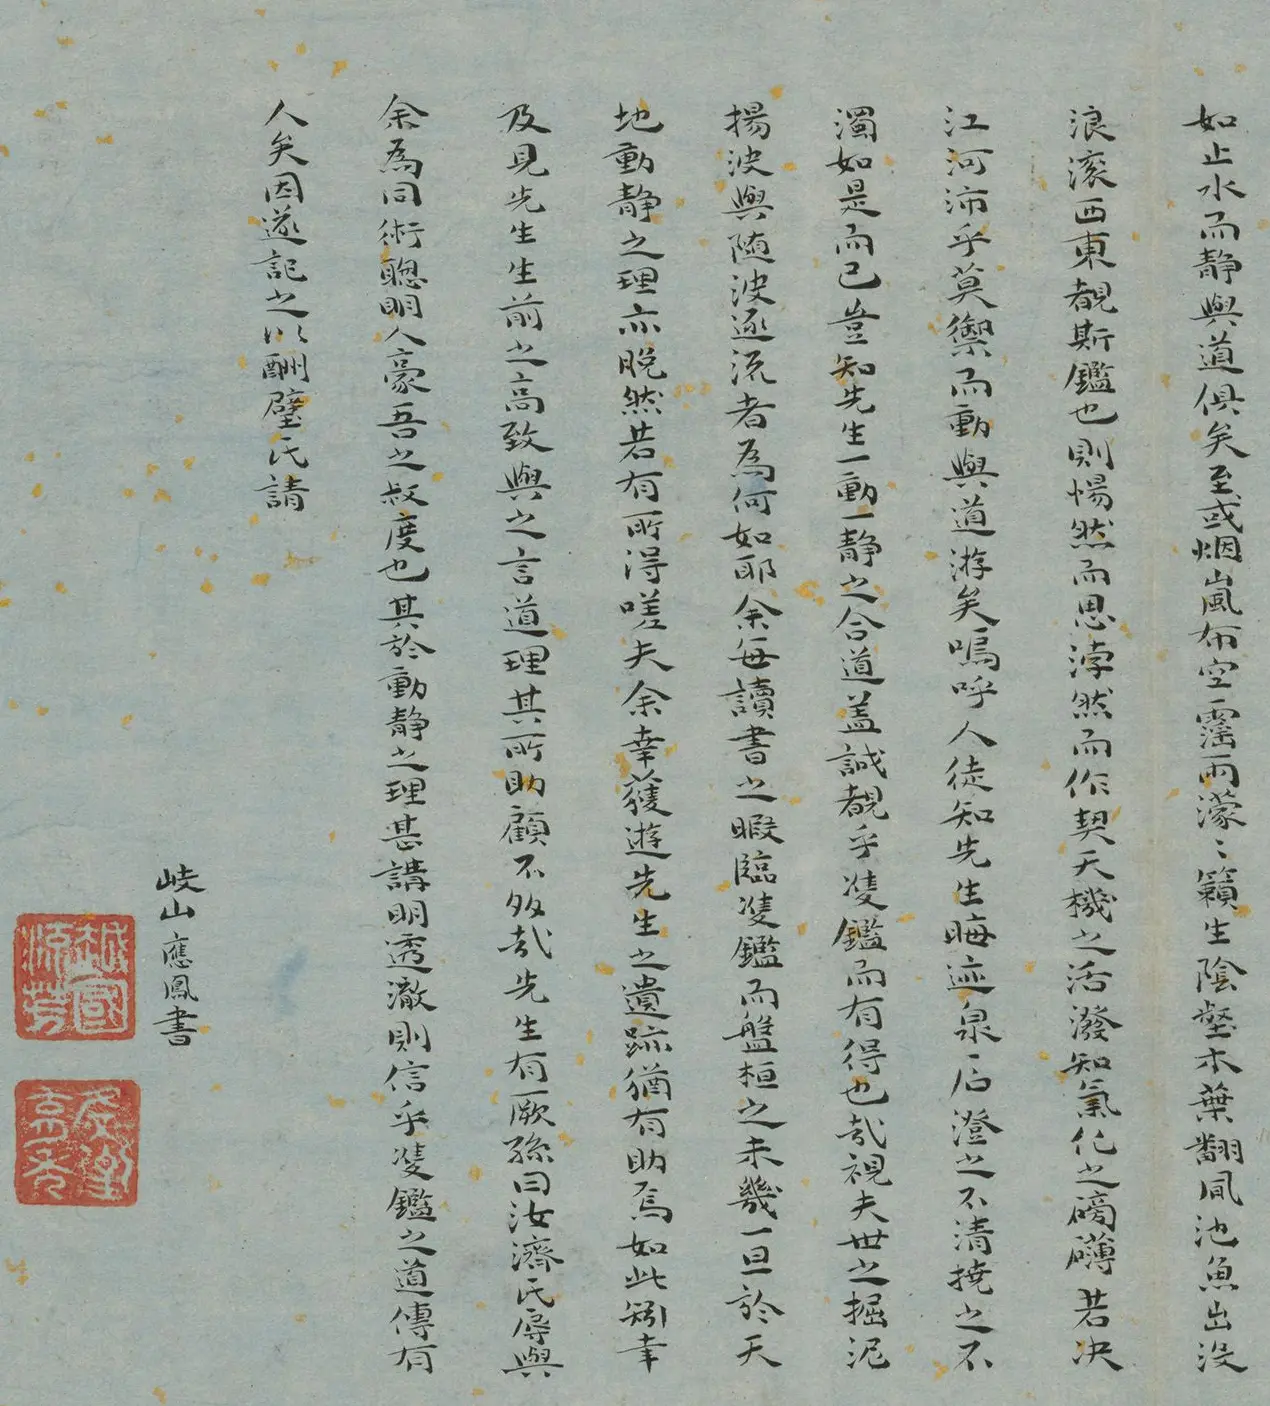 如止水而静與道俱矣至或烟嵐布空靄雨濛〻籟生陰壑木葉翻風池魚出没
浪滚西東覩斯鑑也則惕然而思浡然而作契天機之活潑知氣化之磅礴若决
江河沛乎莫禦而動與道游矣嗚呼人徒知先生晦迹泉石澄之不清撓之不
濁如是而已豈知先生一動一静之合道盖誠覩乎雙鑑而有得也哉視夫世之掘泥
揚波與随波逐流者為何如耶余每讀書之暇臨雙鑑而盤桓之未幾一旦於天
地動静之理亦脱然若有所得嗟夫余幸獲遊先生之遺跡猶有助焉如此矧幸
及見先生生前之高致與之言道理其所助顧不多哉先生有厥孫曰汝濟氏辱與
余為同術聰明人豪吾之叔度也其於動静之理甚講明透澈則信乎雙鑑之道傳有
人矣因遂記之以酬璧氏請
岐山應鳳書